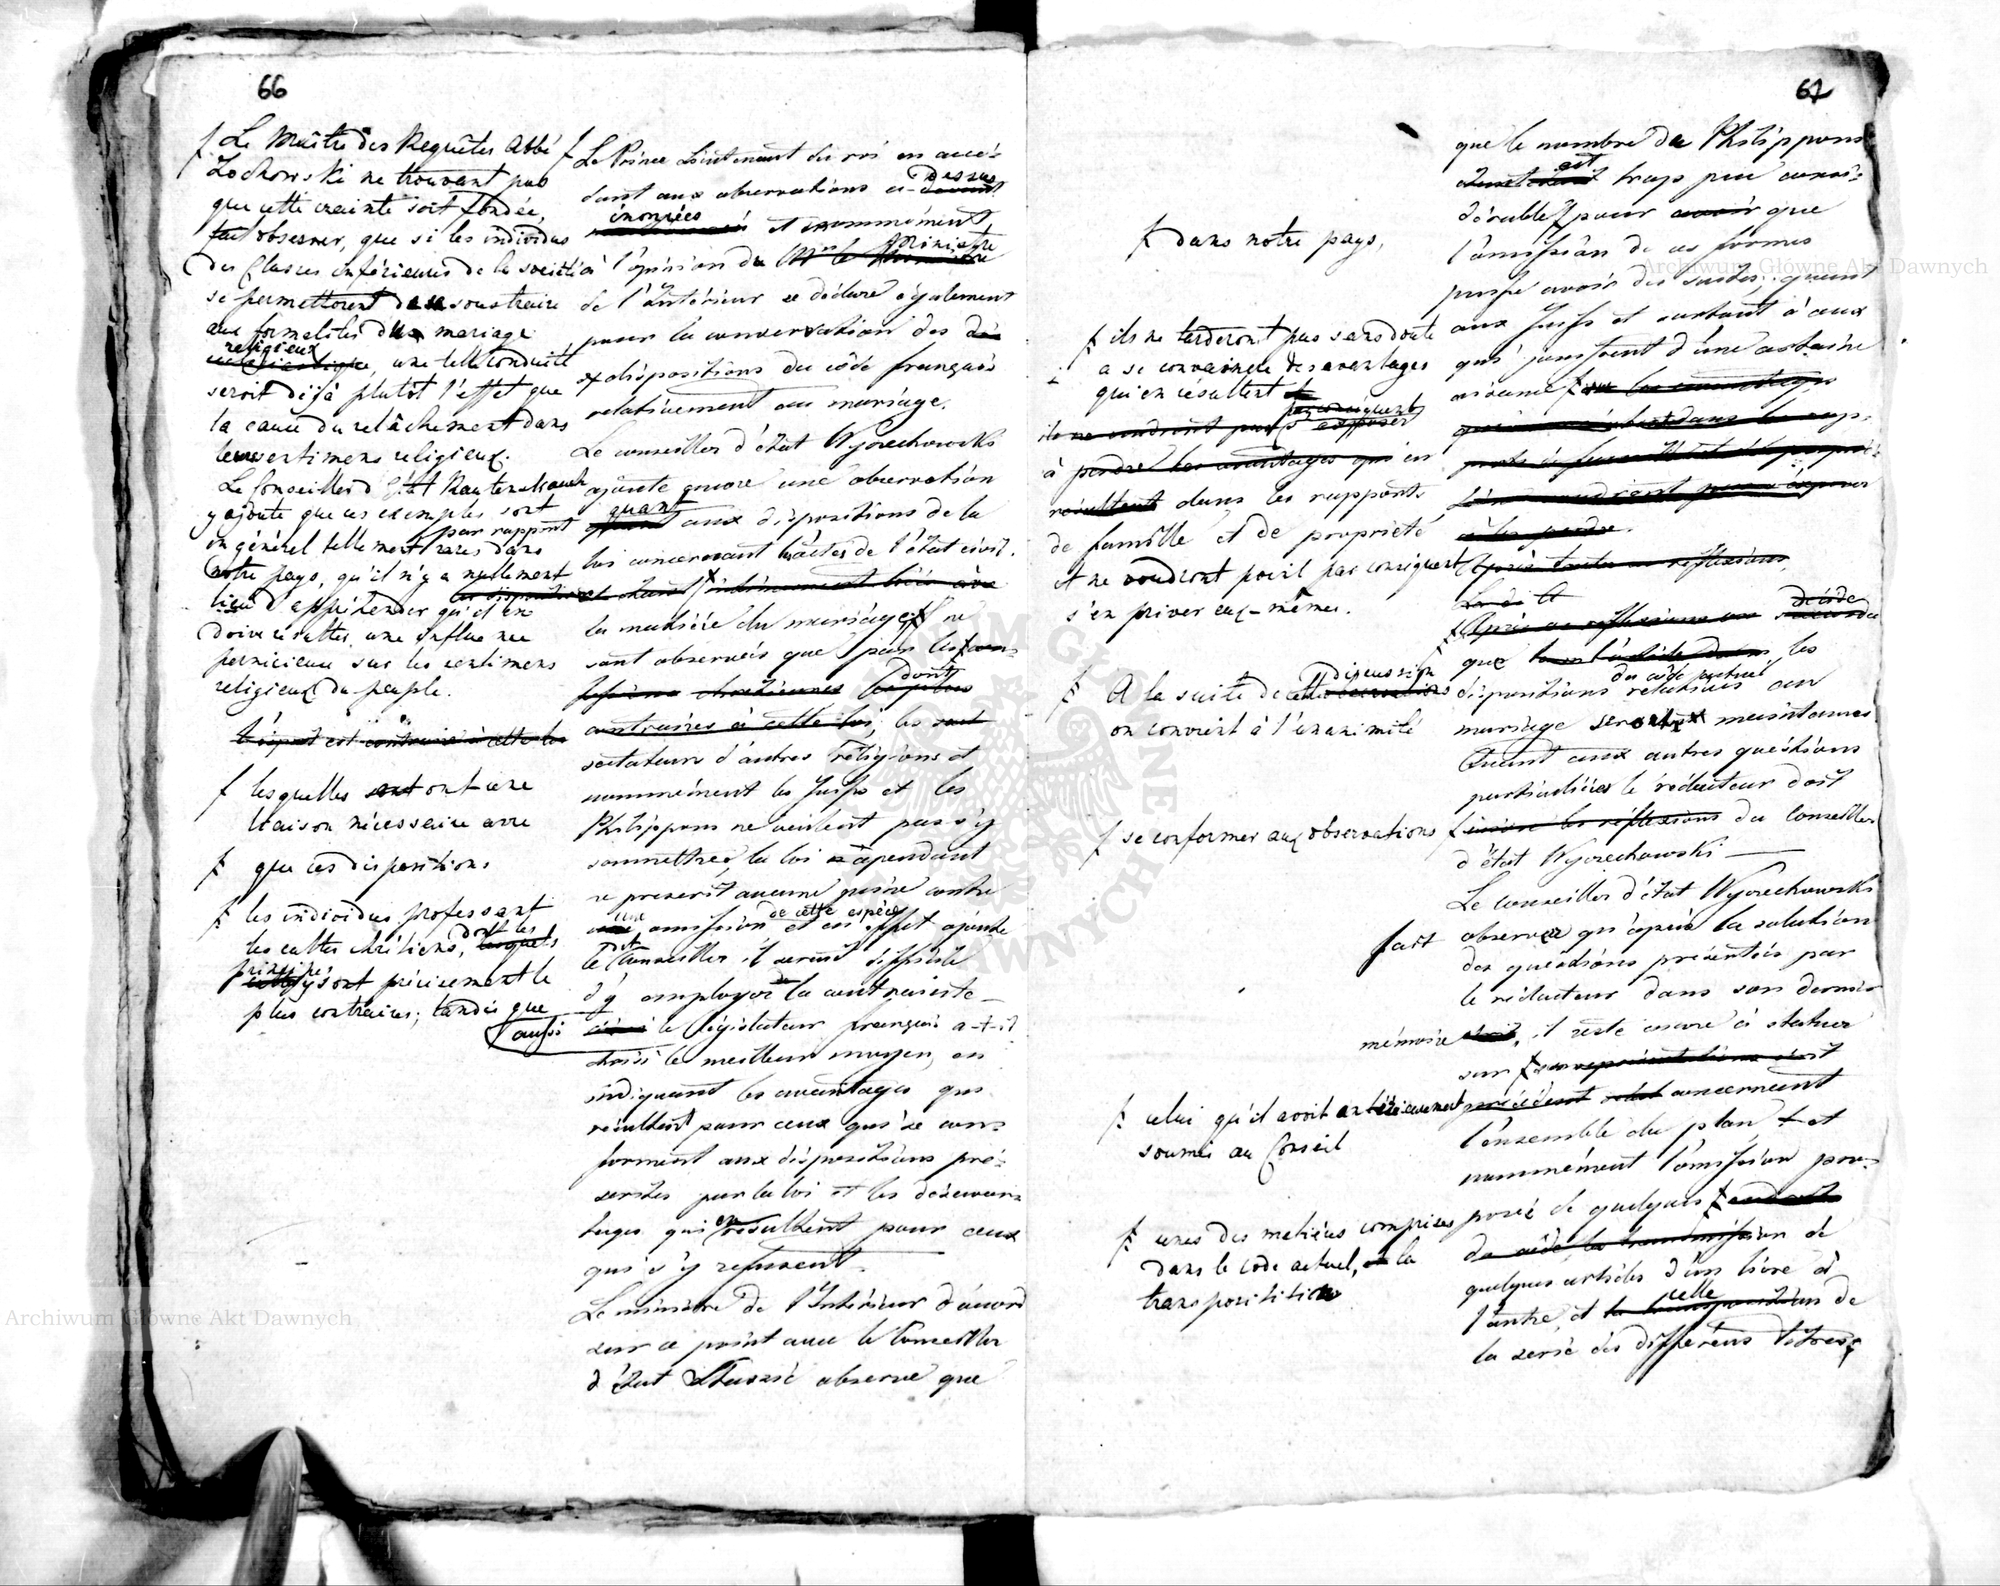 66
ƒ Le Maître des Requêtes Abbé
Zochowski ne trouvant pas
que cette crainte soit fondée,
fait observer, que si les individus
des Classes inférieures de la société
se permettoient de se soustraire
aux formalités du mariage
religieux
ecclésiastique, une telle conduite
seroit déjà plutôt l'effet que
la cause du relâchement dans
leurs sentimens religieux.
Le Conseiller d'Etat
y ajoute que ces exemples sont
par rapport
en général tellement rares dans
notre pays, qu'il n'y a nullement
lieu d'appréhender qu'il en
doive résulter une influence
pernicieuse sur les sentimens
religieux du peuple.
l'esprit est contraire à cette loi
ƒ lesquelles sont ont une
liaison nécessaire avec
ƒ que ces dispositions
ƒ les individus professant
les cultes chrétiens, dont les
principes
y sont précisement le
plus contraires; tandis que
aussi
ƒ Le Prince Lieutenant du roi en accé-
dant aux observations ci-dessus
énoncées
et nommément
à l'opinion du Mr le Ministre
de l'Intérieur se déclare également
pour la conservation des
dispositions du côde français
relativement au mariage.
Le conseiller d'état Wyczechowski
ajoute encore une observation
quant
quant aux dispositions de la
loi concernant les actes de l'état civil.
et étant intimement liées avec
la matière du mariage ne
sont observées que par les con-
fessions chrétiennes les plus
dont
contraires à cette loi, les sont
sectateurs d'autres religions et
nommément les Juifs et les
Philippons ne veulent pas s'y
soumettre, la loi cependant
ne prescrit aucune peine contre
une omission de cette espèce et en effet ajoute
le dit Conseiller il seroit difficile
d'y employer de la contrainte —
le législateur français a-t-il
choisi le meilleur moyen, en
indiquant les avantages qui
résultent pour ceux qui se con-
forment aux dispositions pré-
scrites par la loi et les désavan-
tages qui en résultent pour ceux
qui s'y refusent.
Le ministre de l'Intérieur d'accord
sur ce point avec le Conseiller
d'Etat Staszic observe que
67
ƒ dans notre pays,
ƒ ils ne tarderont pas sans doute
a se convaincre des avantages
qui en résultent
par conséquent
ils ne voudront pas s'exposer
à perdre les avantages qui en
résultent dans les rapports
de famille et de propriété
et ne voudront point par conséquent
s'en priver eux-mêmes.
ƒ A la suite de cette discussion
observations
on convient à l'unanimité
ƒ se conformer aux observations
fait
mémoire
ƒ celui qu'il avoit antérieurement
soumis au Conseil
ƒ unes des matières comprises
dans le code actuel, la
transposititio
que le nombre de Philippons
est
étant trop peu consi-
dérable ƒ pour avoir que
l'omission de ces formes
puisse avoir des suites; quant
aux Juifs et surtout à ceux
qui jouissent d'une certaine
aisance ƒ sur les avantages
dans les rap-
ports de famille et de proprié-
té ne voudront pas s'exposer
à les perdre.
Après toutes ces réflexions
Le dit
ƒ Après ces réflexions on décide
que les
du côde actuel
dispositions relatives au
mariage seront maintenues
Quant aux autres questions
particulières le rédacteur doit
ƒ suivre les réflexions du Conseiller
d'état Wyczechowski —
Le conseiller d'état Wyczechowski
observer qu'après la solution
des questions présentées par
le rédacteur dans son dernier
il reste encore à statuer
sur ƒ
précédent concernant
l'ensemble du plan et
nommément l'omission pro-
posée de quelques ƒ endroits
du côde, la transmission de
quelques articles d'un livre à
l'autre, et celle la transposition de
la serie des différens titres;